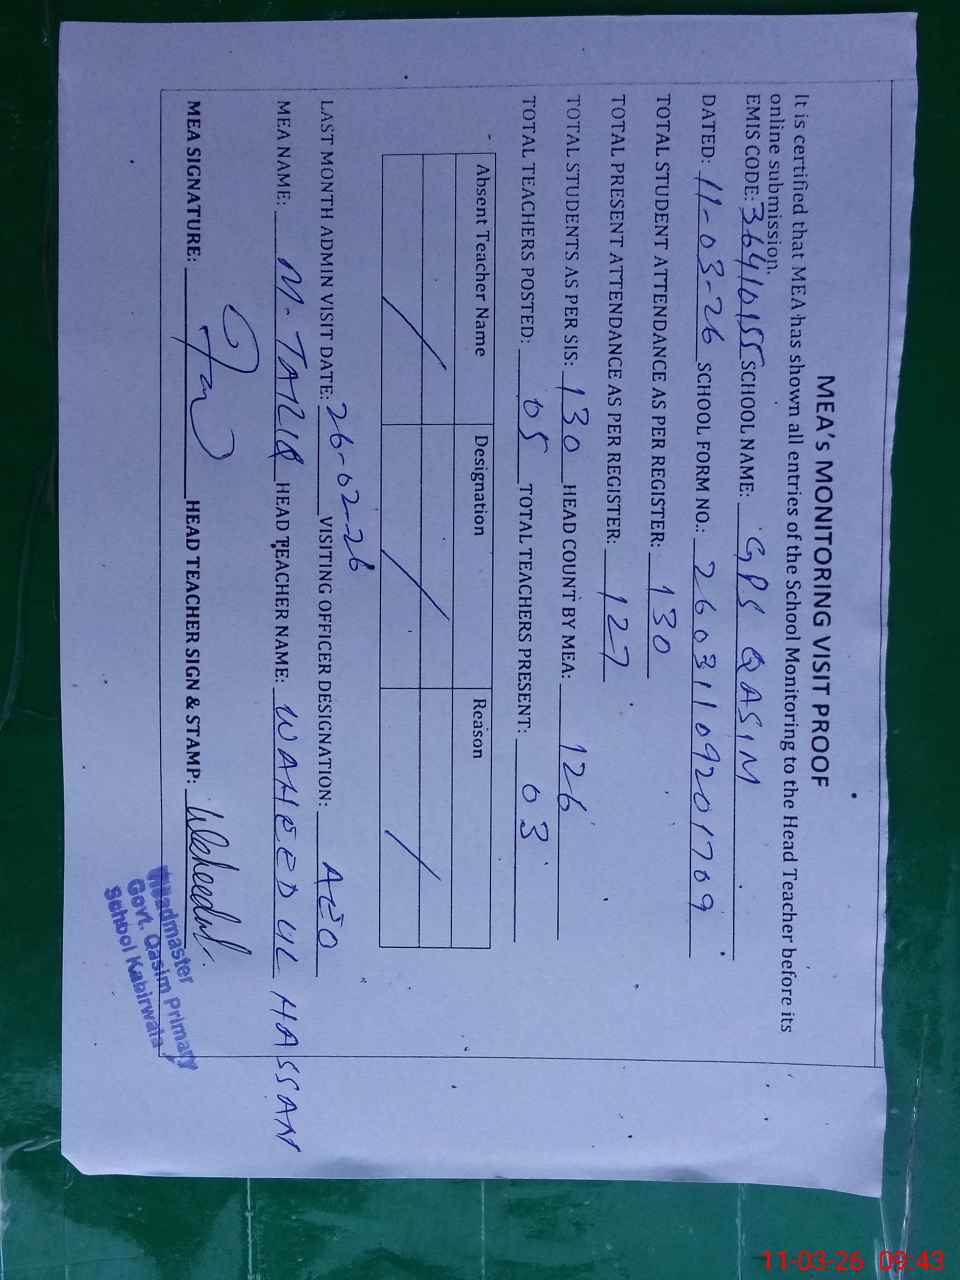 MEA's MONITORING VISIT PROOF
It is certified that MEA has shown all entries of the School Monitoring to the Head Teacher before its
online submission.
EMIS CODE: 36410155 SCHOOL NAME: GPS QASIM
DATED: 11-03-26 SCHOOL FORM NO.: 26031109201709
TOTAL STUDENT ATTENDANCE AS PER REGISTER: 130
TOTAL PRESENT ATTENDANCE AS PER REGISTER: 127
TOTAL STUDENTS AS PER SIS: 130 HEAD COUNT BY MEA: 126
TOTAL TEACHERS POSTED: 05 TOTAL TEACHERS PRESENT: 03
Absent Teacher Name Designation Reason
LAST MONTH ADMIN VISIT DATE: 26-02-26 VISITING OFFICER DESIGNATION: AEO
MEA NAME: M-TARIQ HEAD TEACHER NAME: WAHEED UL HASSAN
MEA SIGNATURE: HEAD TEACHER SIGN & STAMP: Waheedul
Headmaster
Govt. Qasim Primary
School Kabirwala
11-03-26 09:43